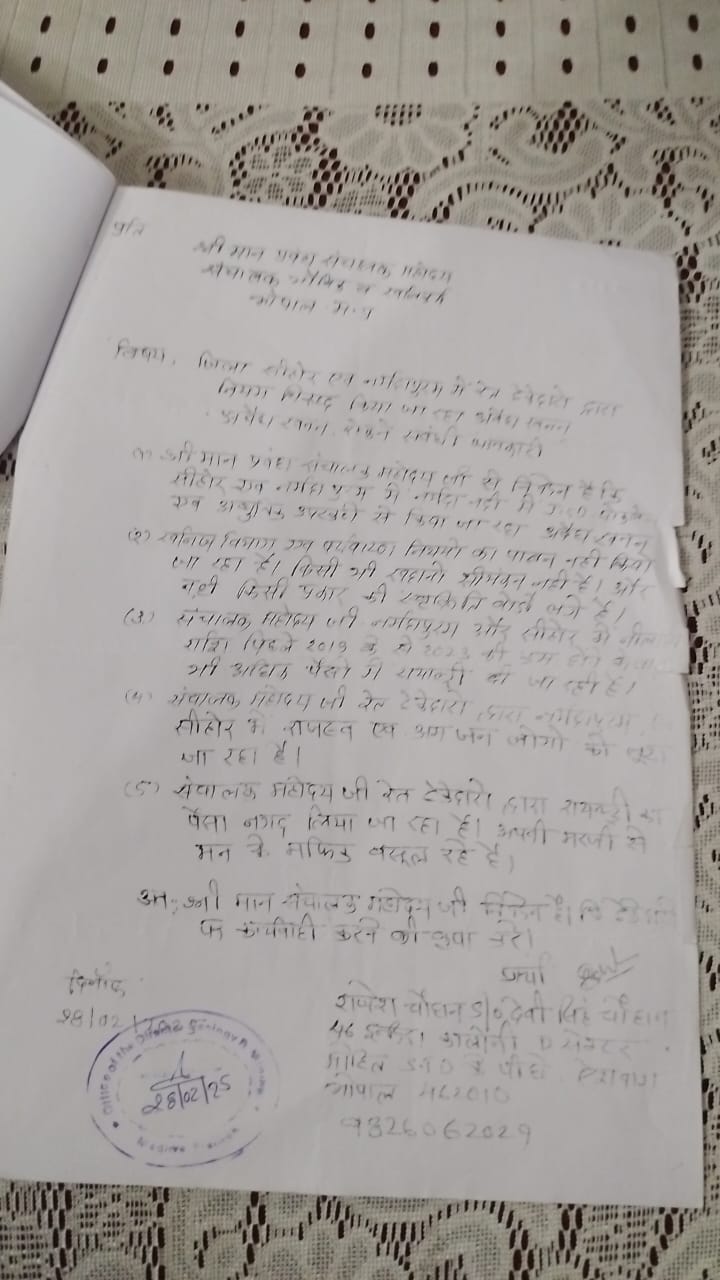 प्रति
श्री मान प्रबंध संचालक महोदय
संचालक भौमिकी व खनिकर्म
भोपाल म.प्र
विषय. जिला सीहोर एवं नर्मदापुरम में रेत ठेकेदारो द्वारा
नियम विरुद्ध किया जा रहा अवैध खनन
अवैध खनन रोकने संबंधी जानकारी
(1) श्री मान प्रबंध संचालक महोदय जी से निवेदन है कि
सीहोर एवं नर्मदापुरम में नर्मदा नदी में
एवं आधुनिक उपकरणों से किया जा रहा अवैध खनन
(2) खनिज विभाग एवं पर्यावरण नियमो का पालन नही किया
जा रहा है। किसी भी खदानो सीमांकन नही है। और
नही किसी प्रकार की स्वीकृति बोर्ड लगे है।
(3) संचालक महोदय जी नर्मदापुरम और सीहोर में नीलाम
राशि पिछले 2019 के से 2023 की कम होने के
भी अधिक पैसो में रायल्टी दी जा रही है।
(4) संचालक महोदय जी रेत ठेकेदारो द्वारा नर्मदापुरम
सीहोर में राजस्व एवं आम जन लोगो को लूटा
जा रहा है।
(5) संचालक महोदय जी रेत ठेकेदारो द्वारा रायल्टी का
पैसा नगद लिया जा रहा है। अपनी मरजी से
मन के माफिक वसूल रहे है।
अतः श्री मान संचालक महोदय जी निवेदन है। कि
पर कार्यवाही करने की कृपा करे।
दिनांक
28/02/
प्रार्थी
राजेश चौहान S/o देवी सिंह चौहान
46 कालोनी सेक्टर
के पीछे
भोपाल 462010
9826062029
Office of the Director Geology & Mining
28/02/25